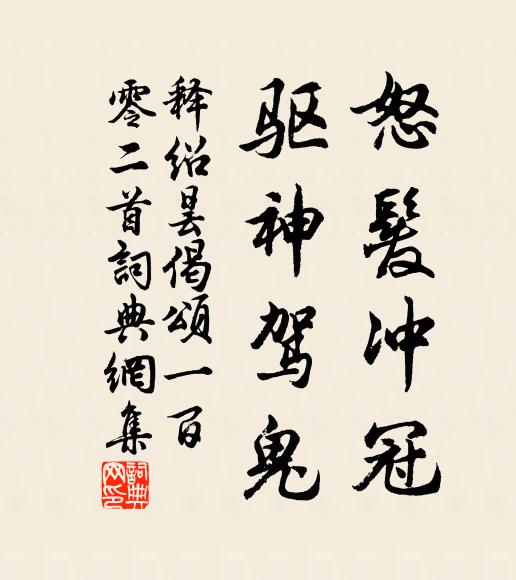 怒髮冲冠
驱神驾鬼
释绍昙偈頌一百
零二首詞典網集
詞典网印